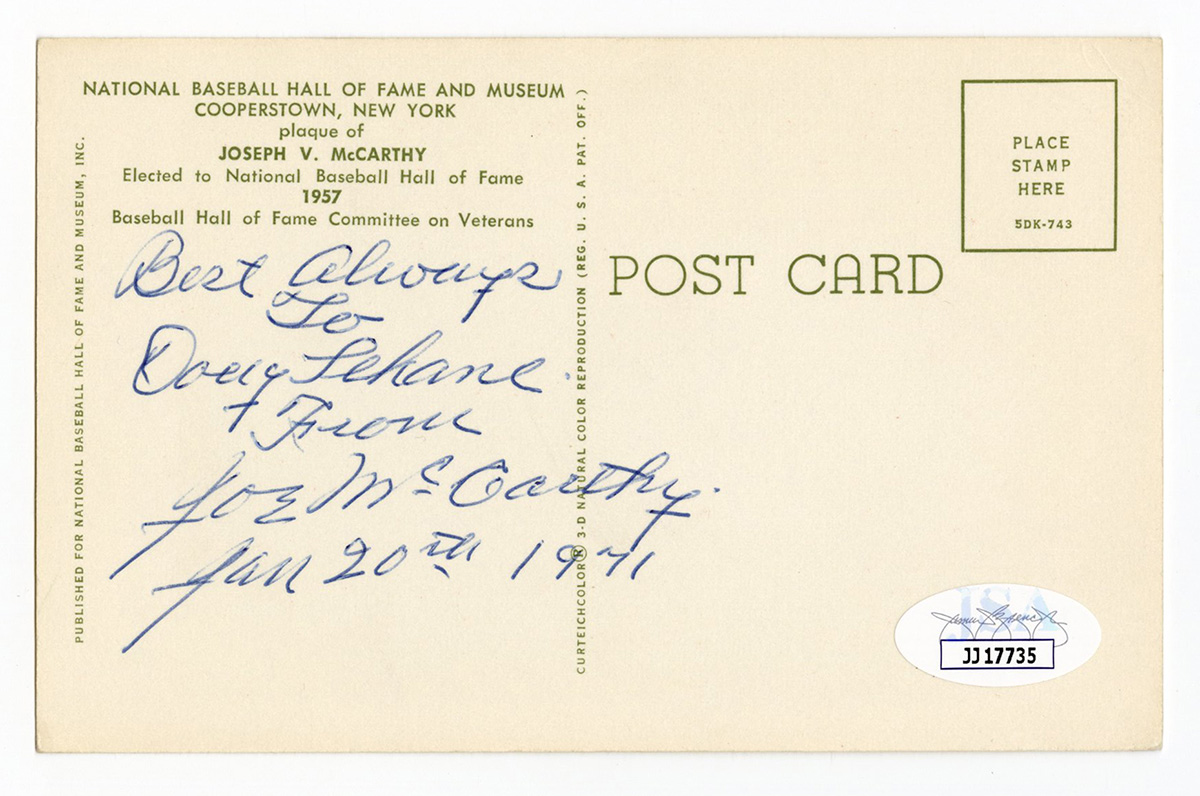 NATIONAL BASEBALL HALL OF FAME AND MUSEUM
COOPERSTOWN, NEW YORK
plaque of
JOSEPH V. McCARTHY
Elected to National Baseball Hall of Fame
1957
Baseball Hall of Fame Committee on Veterans
Best Always
To
Doug Lehane.
From
Joe McCarthy.
Jan 20th 1971
PUBLISHED FOR NATIONAL BASEBALL HALL OF FAME AND MUSEUM, INC.
CURTEICHCOLOR® 3-D NATURAL COLOR REPRODUCTION (REG. U. S. A. PAT. OFF.)
POST CARD
PLACE
STAMP
HERE
5DK-743
JSA
James Spence
JJ17735